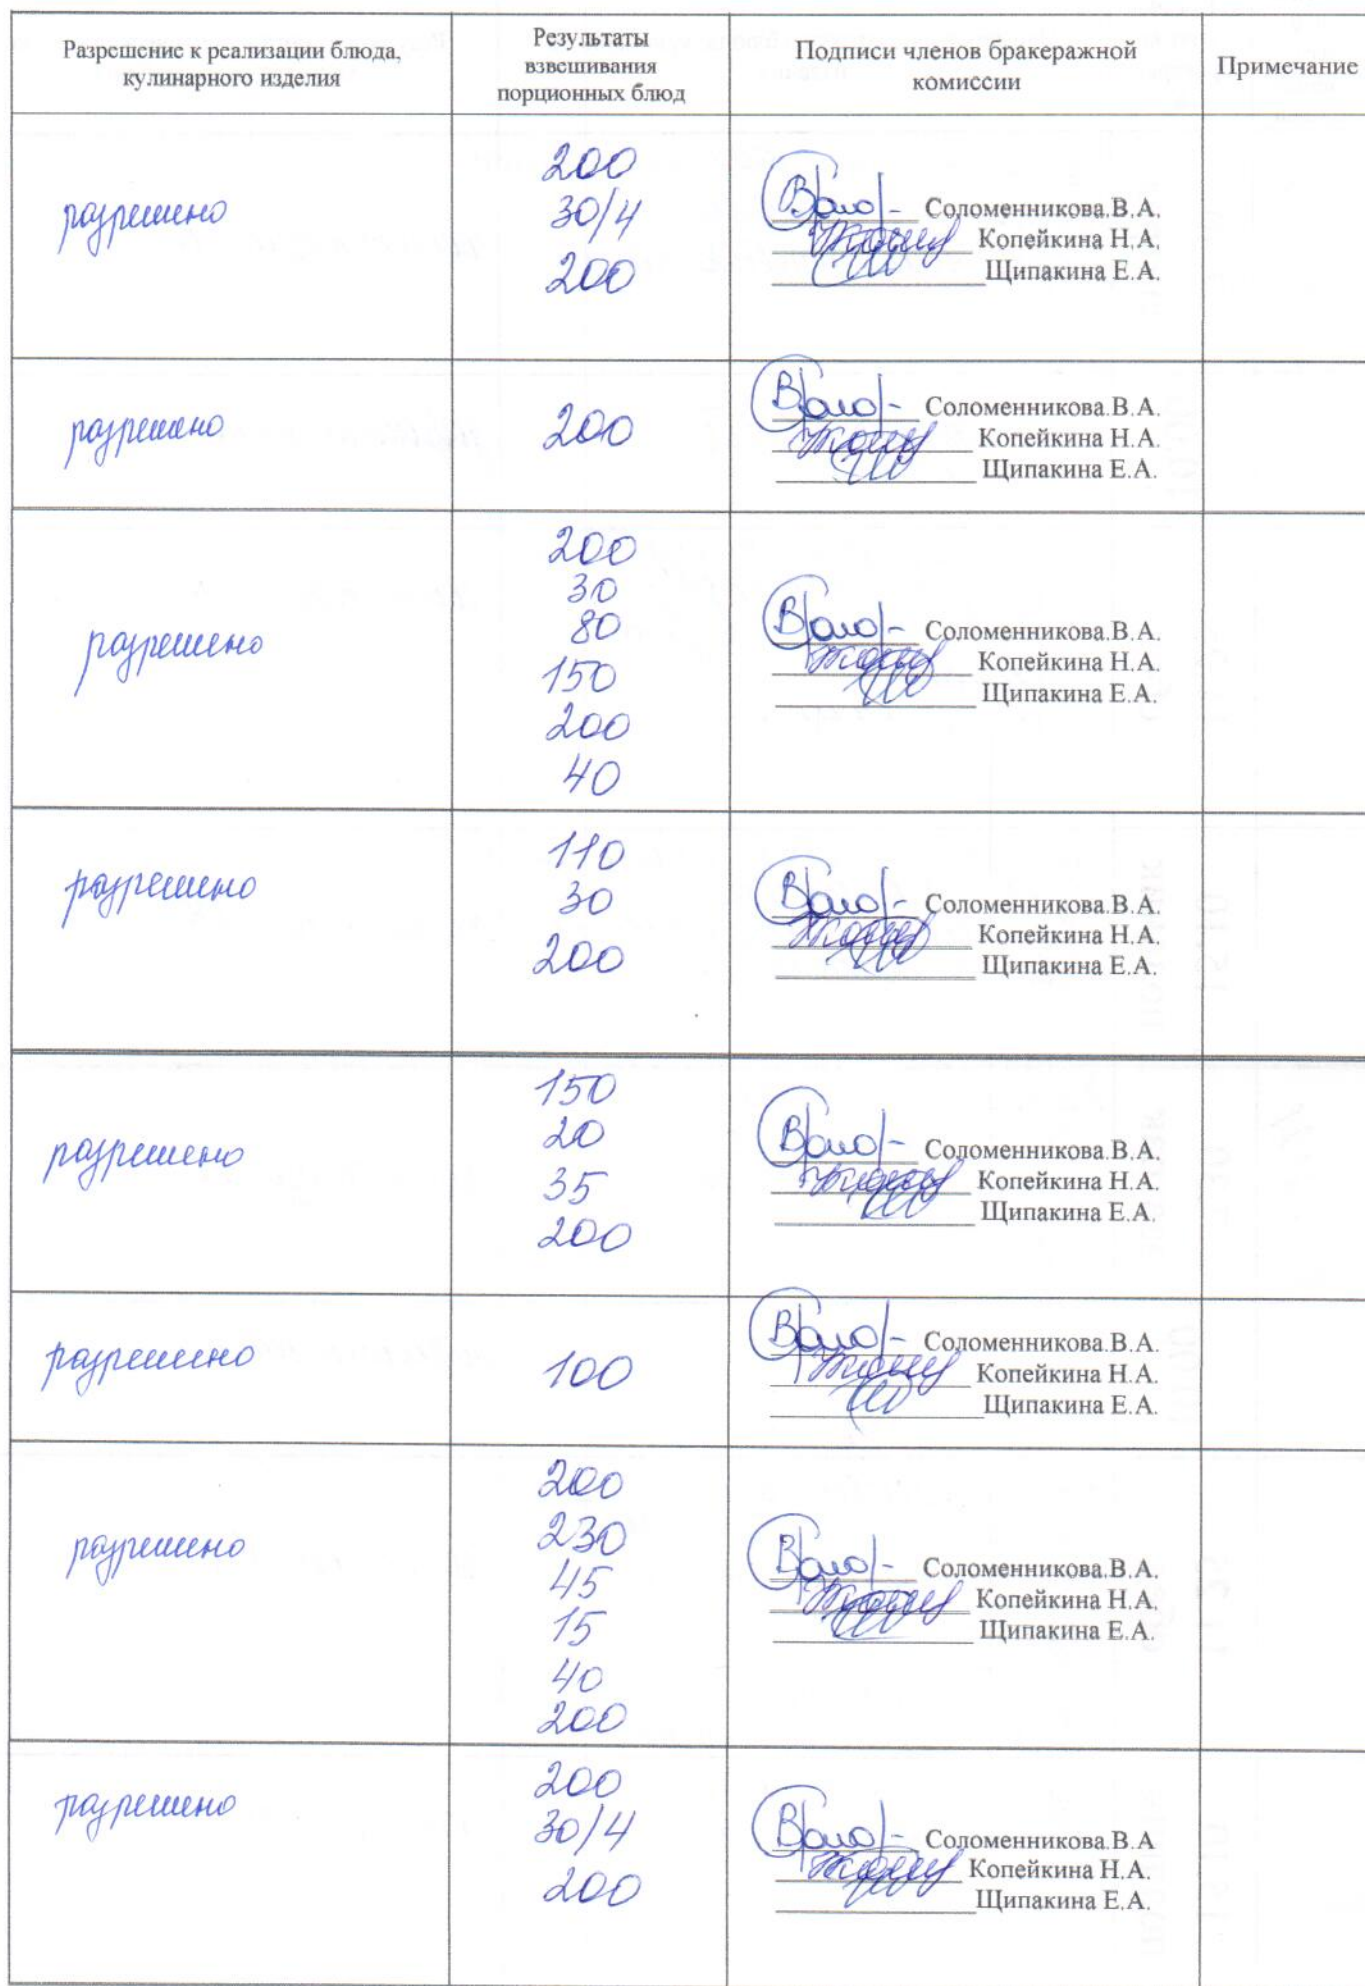 Разрешение к реализации блюда,
кулинарного изделия
Результаты
взвешивания
порционных блюд
Подписи членов бракеражной
комиссии
Примечание
разрешено
200
30/4
200
Соломенникова.В.А.
Копейкина Н.А.
Щипакина Е.А.
разрешено
200
Соломенникова.В.А.
Копейкина Н.А.
Щипакина Е.А.
разрешено
200
30
80
150
200
40
Соломенникова.В.А.
Копейкина Н.А.
Щипакина Е.А.
разрешено
110
30
200
Соломенникова.В.А.
Копейкина Н.А.
Щипакина Е.А.
разрешено
150
20
35
200
Соломенникова.В.А.
Копейкина Н.А.
Щипакина Е.А.
разрешено
100
Соломенникова.В.А.
Копейкина Н.А.
Щипакина Е.А.
разрешено
200
230
45
15
40
200
Соломенникова.В.А.
Копейкина Н.А.
Щипакина Е.А.
разрешено
200
30/4
200
Соломенникова.В.А
Копейкина Н.А.
Щипакина Е.А.